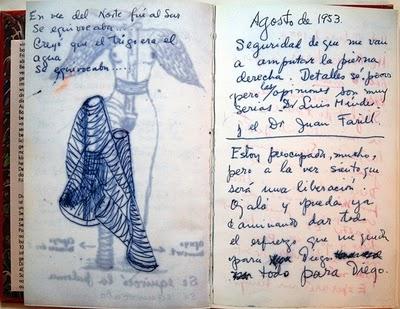 En vez del Norte fué al Sur
Se equivocaba...
Creyó que el trigo era el
agua
Se equivocaba....
Agosto de 1953.
Seguridad de que me van
a amputar la pierna
derecha. Detalles sé pocos
pero las opiniones son muy
serias. Dr Luis Méndez
y el Dr. Juan Farill.
Estoy preocupada, mucho,
pero a la vez siento que
será una liberación.
Ojalá y pueda ya
caminando dar todo
el esfuerzo que me queda
para Diego
todo para Diego.